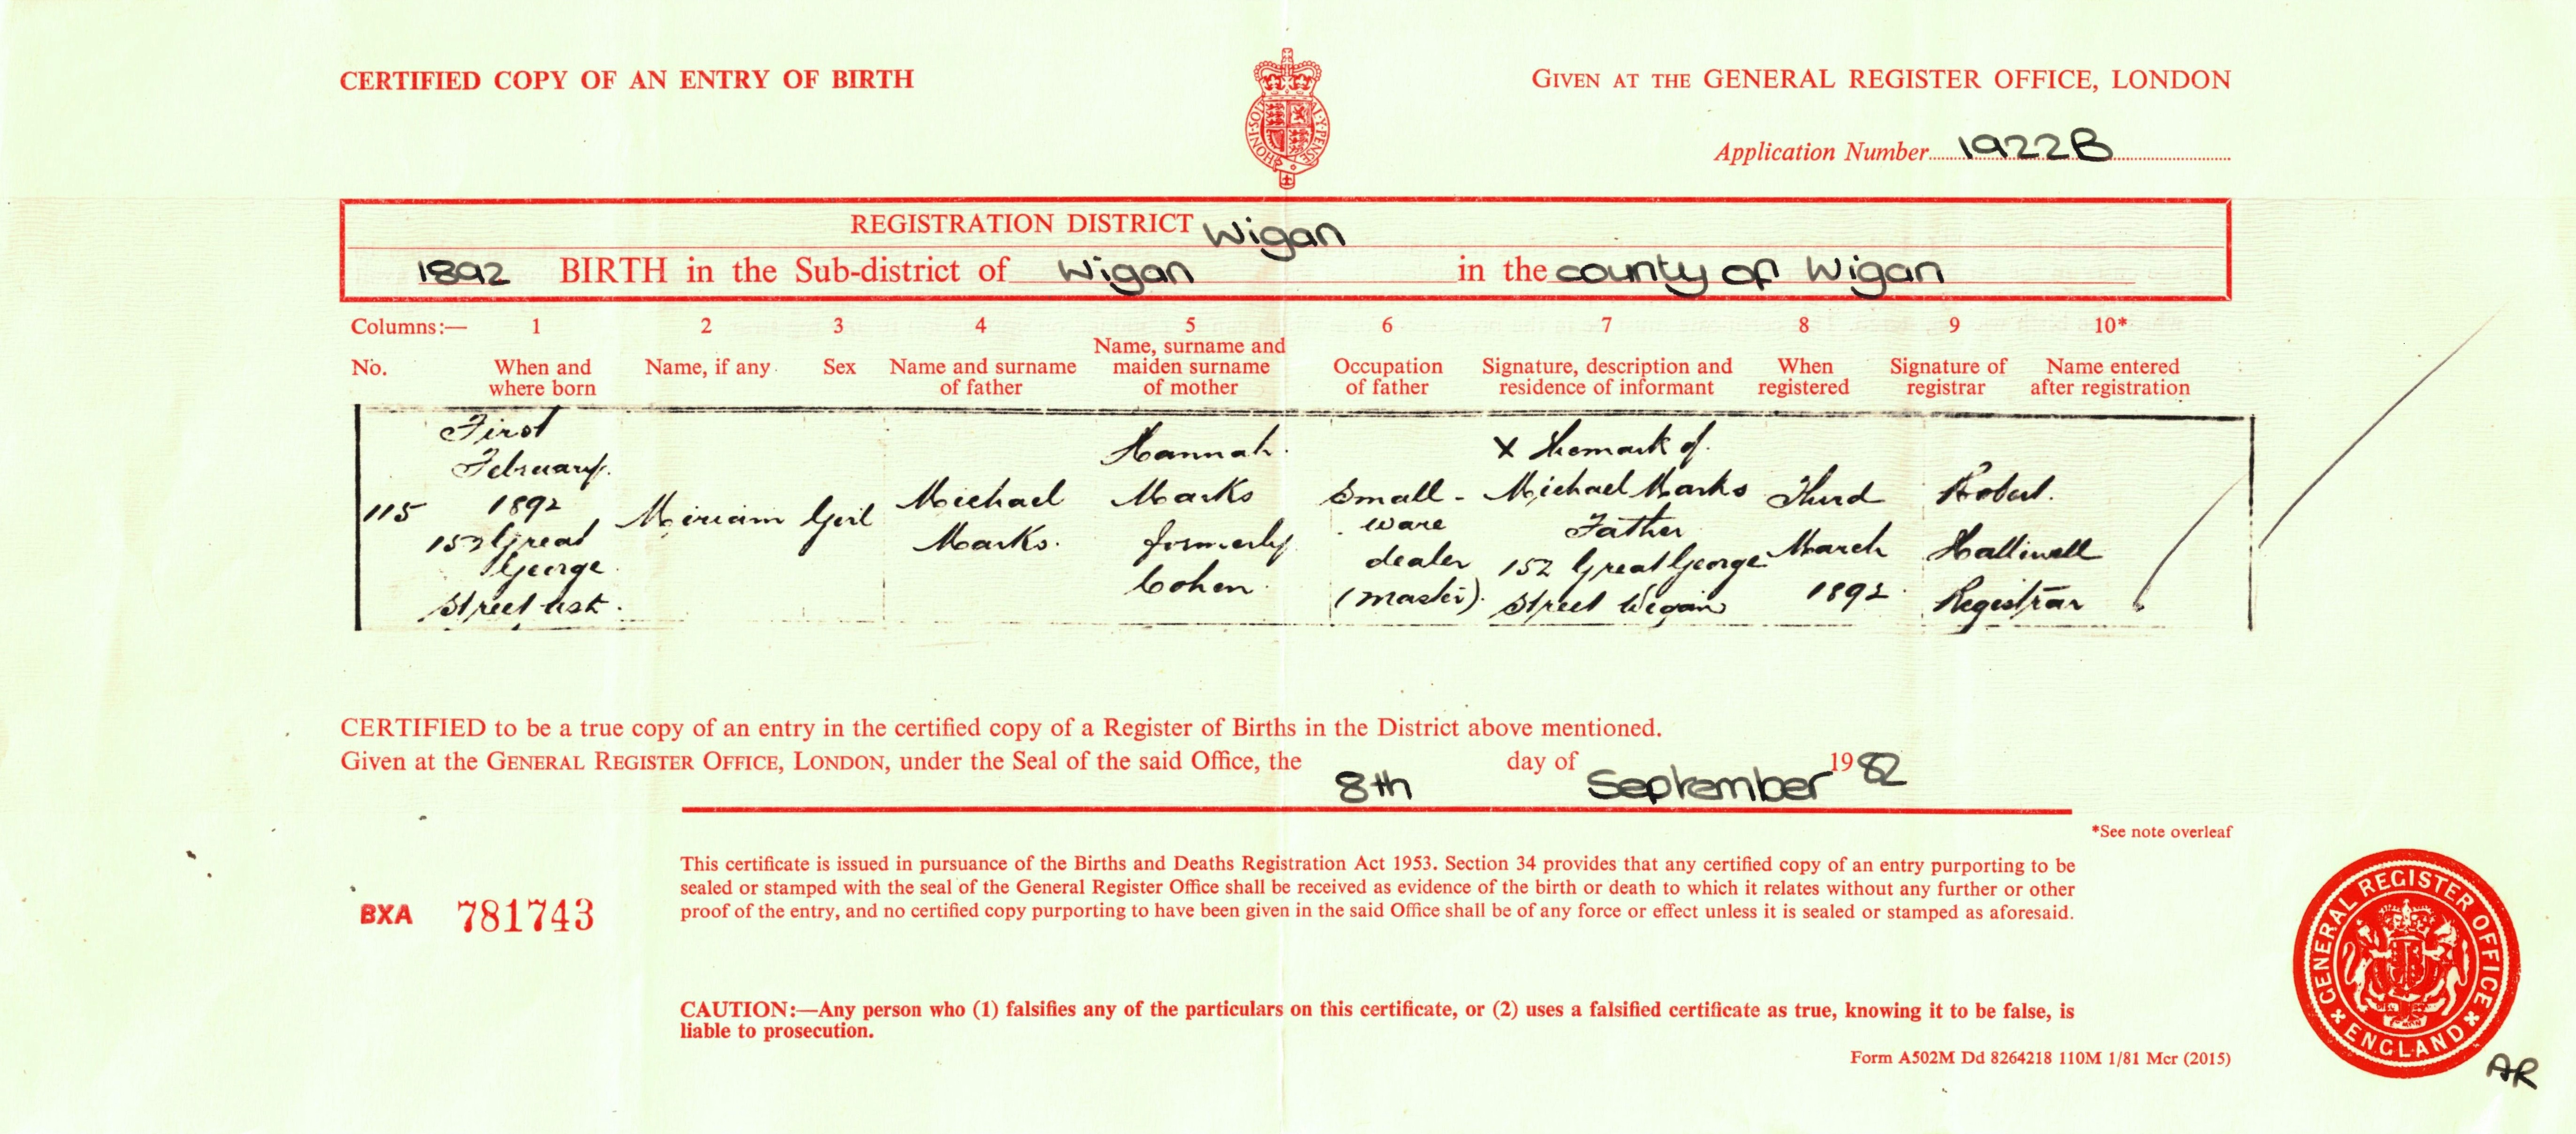 CERTIFIED COPY OF AN ENTRY OF BIRTH
GIVEN AT THE GENERAL REGISTER OFFICE, LONDON
Application Number 1922B
REGISTRATION DISTRICT Wigan
1892 BIRTH in the Sub-district of Wigan in the county of Wigan
Columns:— 1 2 3 4 5 6 7 8 9 10*
No. When and where born Name, if any Sex Name and surname of father Name, surname and maiden surname of mother Occupation of father Signature, description and residence of informant When registered Signature of registrar Name entered after registration
115
First
February
1892
152 Great
George
Street
Miriam
Girl
Michael
Marks.
Hannah
Marks
formerly
Cohen
Small-
ware
dealer
(master)
X The mark of
Michael Marks
Father
152 Great George
Street Wigan
Third
March
1892
Robert
Halliwell
Registrar
CERTIFIED to be a true copy of an entry in the certified copy of a Register of Births in the District above mentioned.
Given at the GENERAL REGISTER OFFICE, LONDON, under the Seal of the said Office, the 8th day of September 1982
*See note overleaf
This certificate is issued in pursuance of the Births and Deaths Registration Act 1953. Section 34 provides that any certified copy of an entry purporting to be
sealed or stamped with the seal of the General Register Office shall be received as evidence of the birth or death to which it relates without any further or other
proof of the entry, and no certified copy purporting to have been given in the said Office shall be of any force or effect unless it is sealed or stamped as aforesaid.
BXA 781743
CAUTION:—Any person who (1) falsifies any of the particulars on this certificate, or (2) uses a falsified certificate as true, knowing it to be false, is
liable to prosecution.
Form A502M Dd 8264218 110M 1/81 Mcr (2015)
GENERAL REGISTER OFFICE
ENGLAND
AR